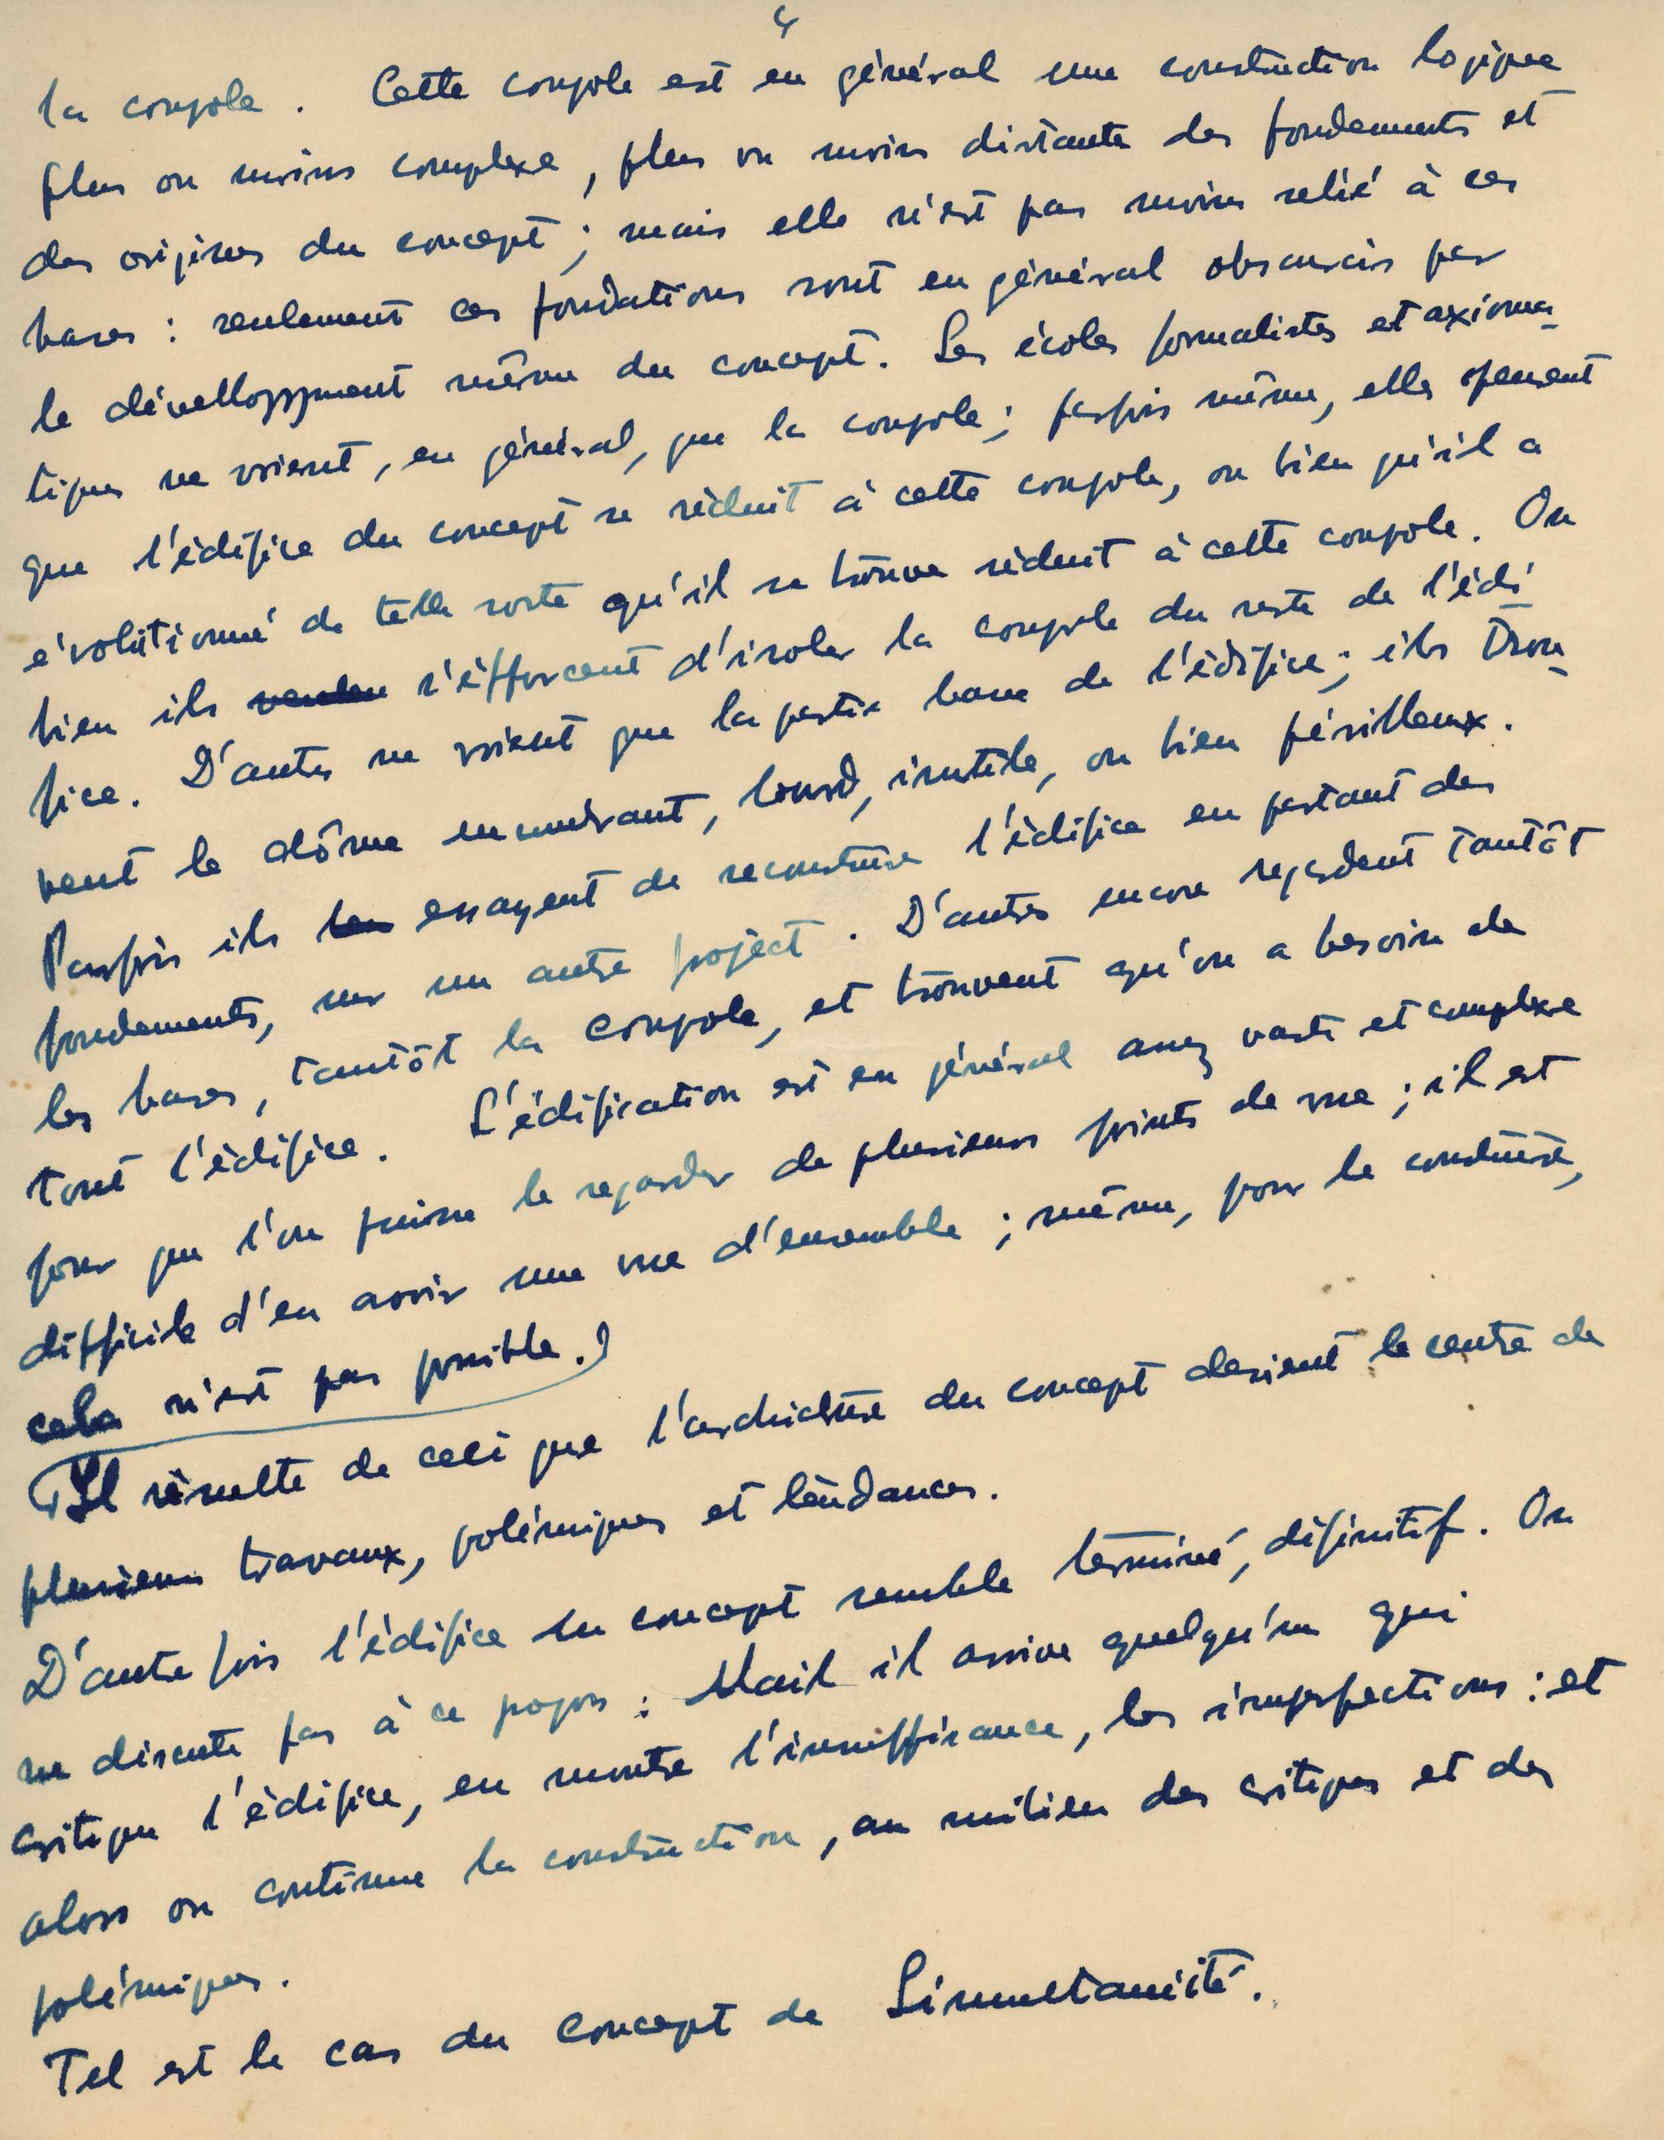 4
la coupole. Cette coupole est en général une construction logique
plus ou moins complexe, plus ou moins distante des fondements et
des origines du concept ; mais elle n'est pas moins relié à ces
bases : seulement ces fondations sont en général obscurcis par
le dévelloppment même du concept. Les écoles formalistes et axioma-
tiques ne voient, en général, que la coupole ; parfois même, elles pensent
que l'édifice du concept se réduit à cette coupole, ou bien qu'il a
évolutionné de telle sorte qu'il se trouve réduit à cette coupole. Ou
bien ils s'éfforcent d'isoler la coupole du reste de l'édi-
fice. D'autes ne voient que la partie basse de l'édifice ; ils trou-
vent le dôme encombrant, lourd, inutile, ou bien périlleux.
Parfois ils essayent de reconstruire l'édifice en partant des
fondements, sur un autre project. D'autres encore regardent tantôt
les bases, tantôt la coupole, et trouvent qu'on a besoin de
tout l'édifice. L'édification est en général assez vaste et complexe
pour que l'on puisse le regarder de plusieurs points de vue ; il est
difficile d'en avoir une vue d'ensemble ; même, pour le construire,
cela n'est pas possible.)
(Il résulte de ceci que l'archicture du concept devient le centre de
plusieurs travaux, polémiques et téndances.
D'aute fois l'édifice du concept semble terminé, définitif. On
ne discute pas à ce popos : Mais il arrive quelqu'un qui
critique l'édifice, en montre l'insuffisance, les imperfections : et
alors on continue la construction, au milieu des critiques et des
polémiques.
Tel est le cas du concept de Simultanéité.